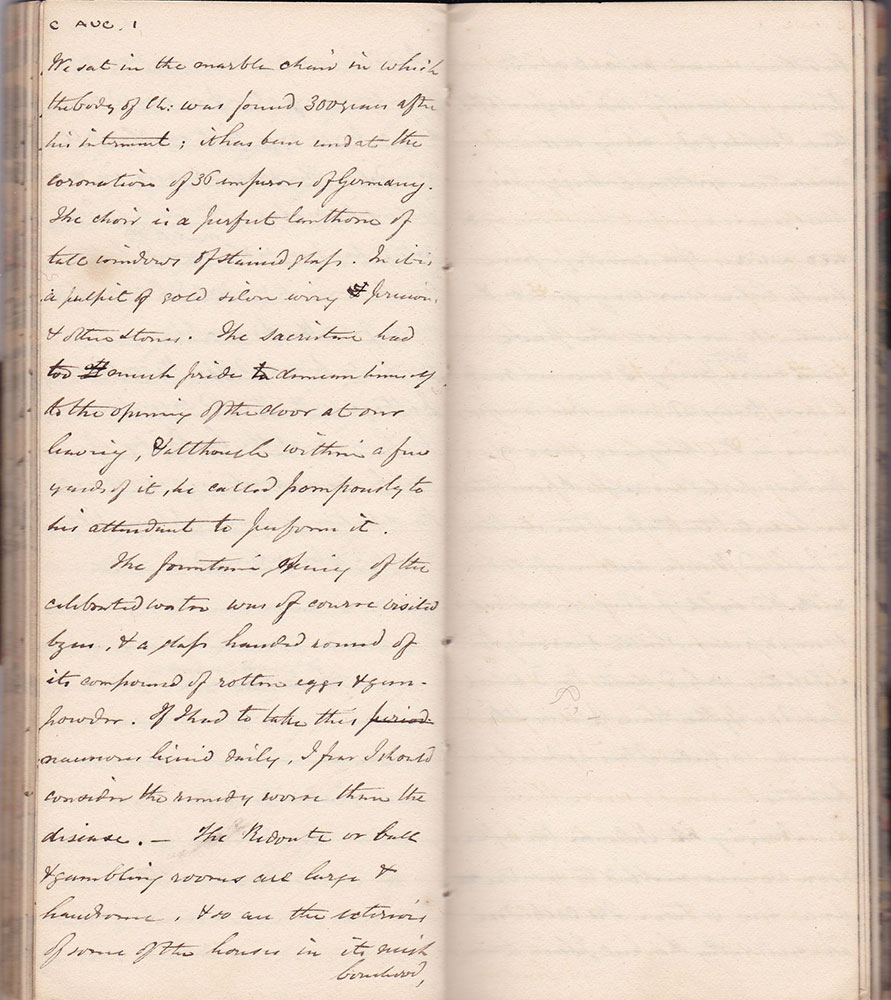 C AUG. 1
We sat in the marble chair in which
the body of Ch: was found 300 years after
his interment; it has been used at the
coronation of 36 emperors of Germany.
The choir is a perfect lanthorn of
tall windows of stained glass. In it is
a pulpit of gold silver ivory & precious
& other stones. The sacristan had
too much pride to demean himself
to the opening of the door at our
leaving, & although within a few
yards of it, he called pompously to
his attendant to perform it.
The fountain of the
celebrated water was of course visited
by us, & a glass handed round of
its compound of rotten eggs & gun-
powder. If I had to take this
nauseous liquid daily, I fear I should
consider the remedy worse than the
disease. — The Redoute or ball
& gambling rooms are large &
handsome, & so are the exteriors
of some of the houses in its neigh
bourhood,